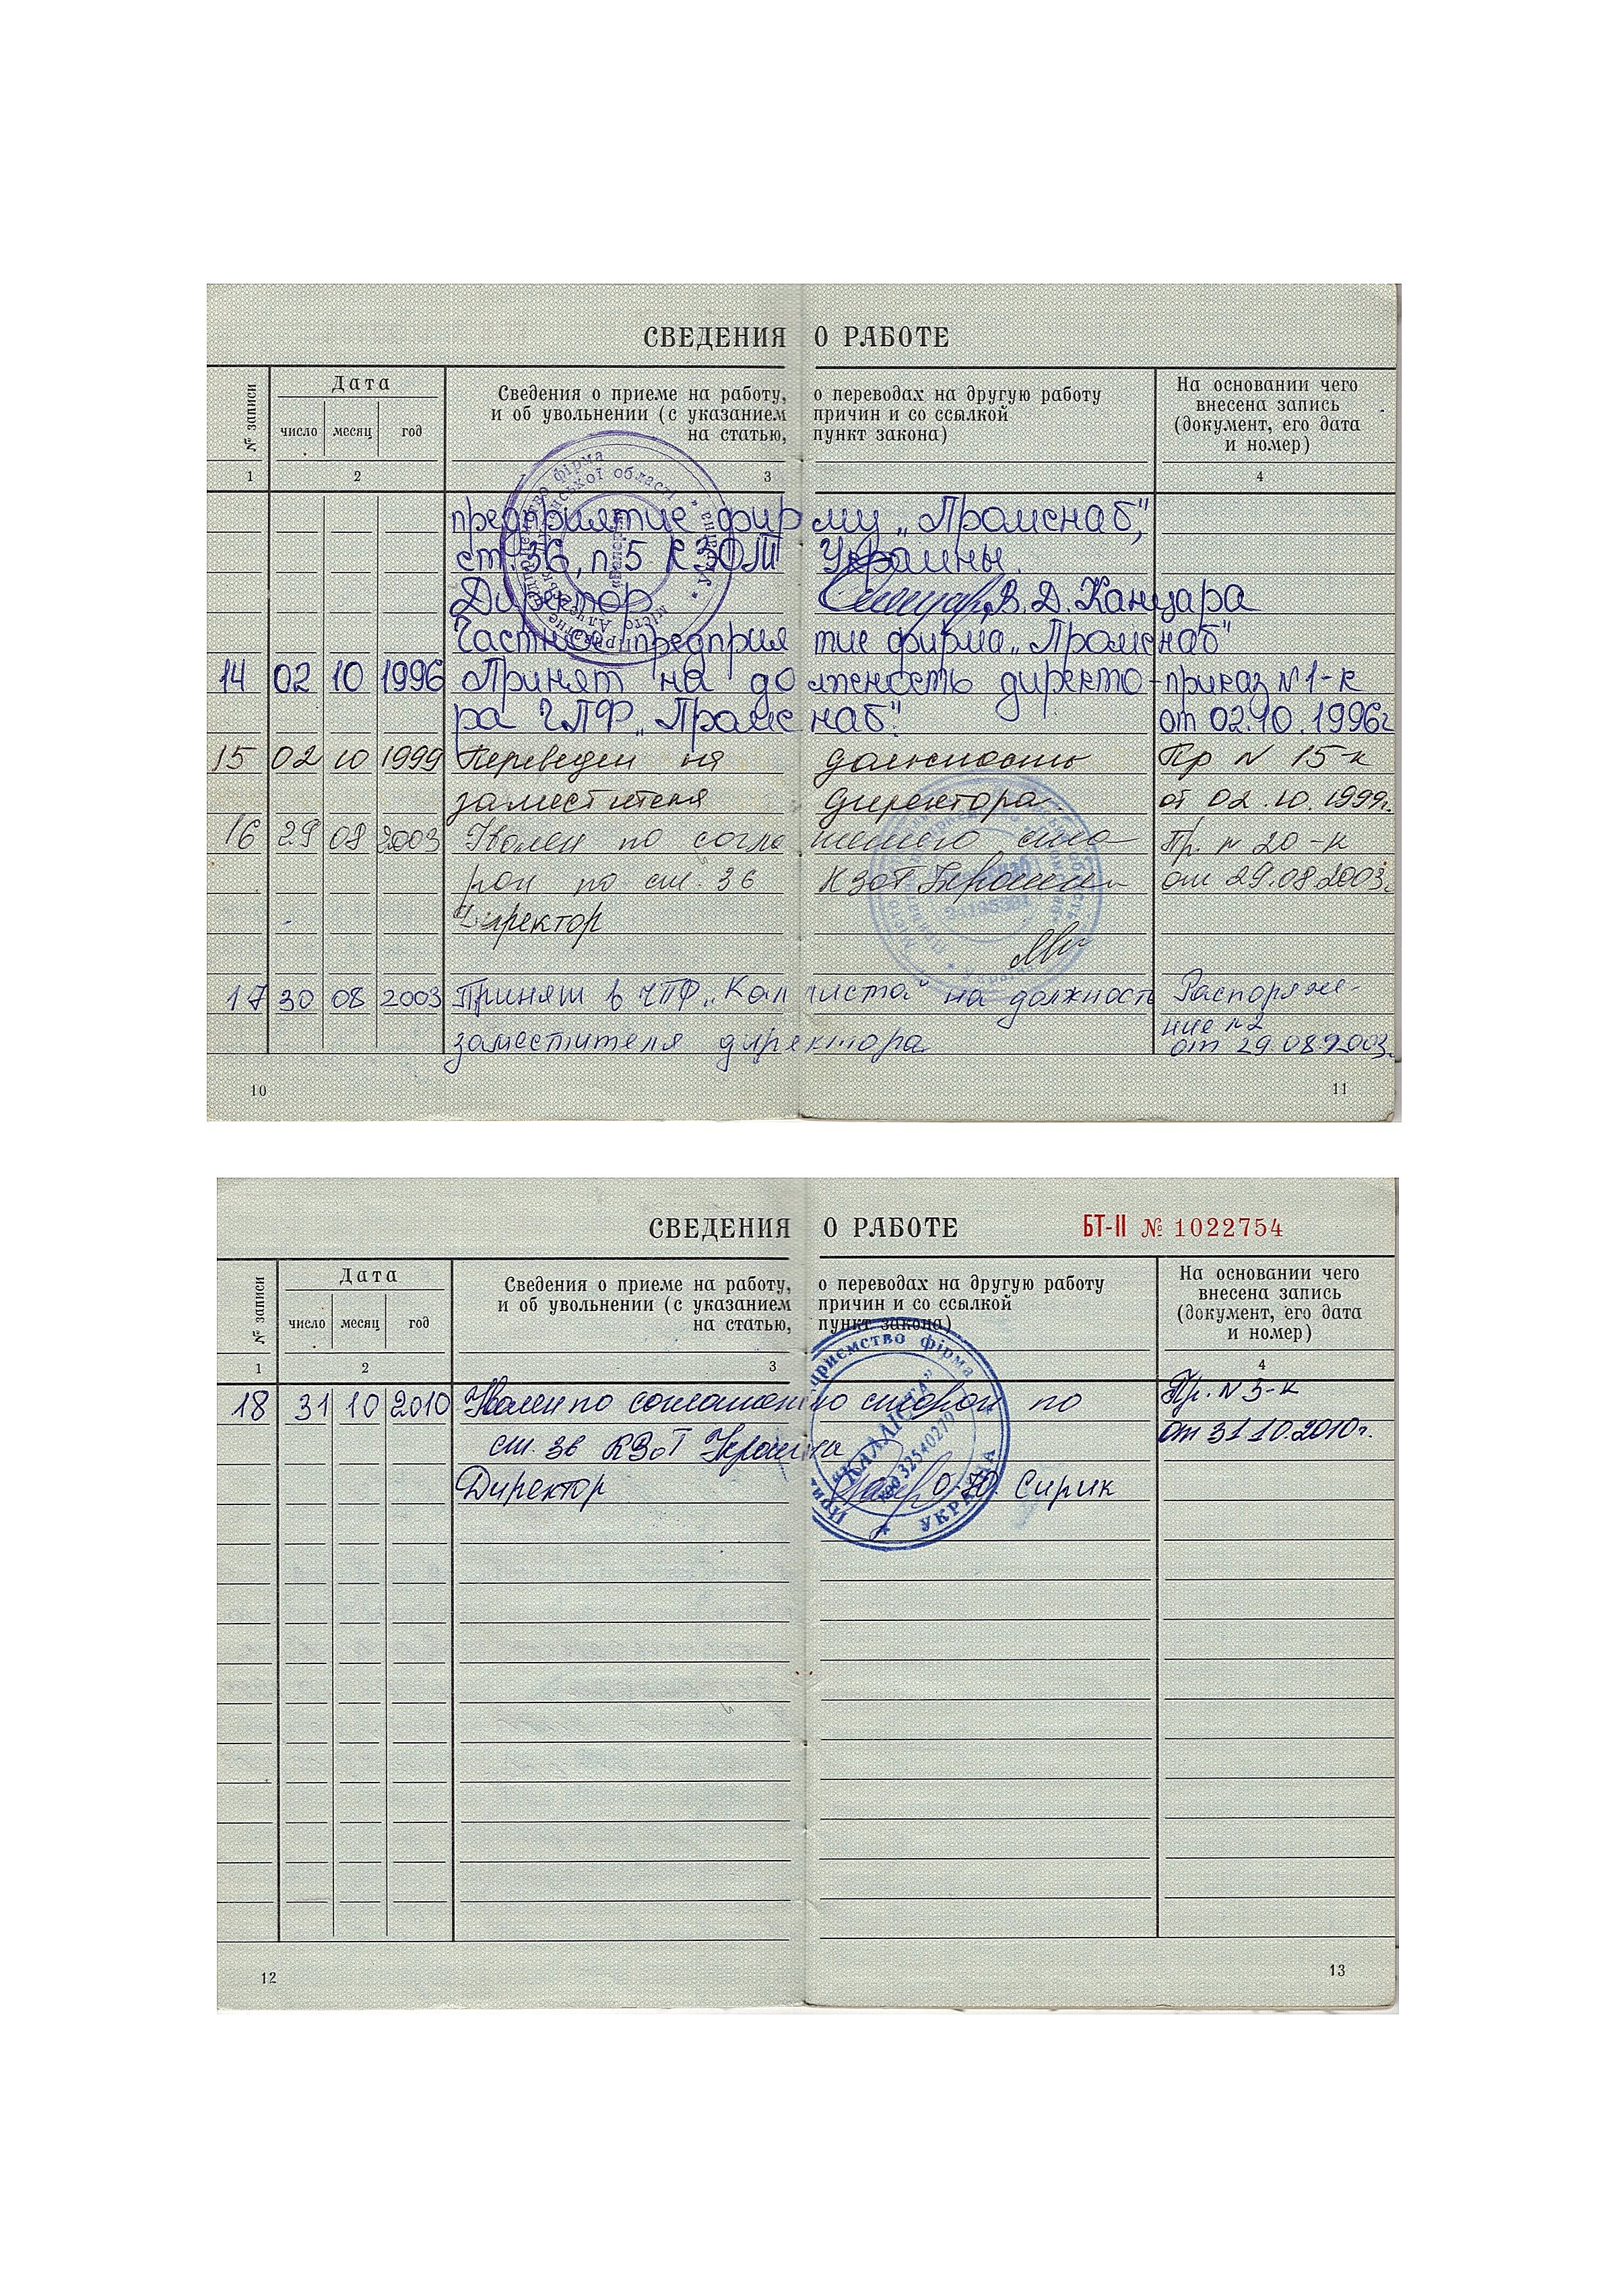 СВЕДЕНИЯ О РАБОТЕ
№ записи
Дата
число месяц год
Сведения о приеме на работу, о переводах на другую работу
и об увольнении (с указанием причин и со ссылкой
на статью, пункт закона)
На основании чего
внесена запись
(документ, его дата
и номер)
1 2 3 4
предприятие фирму „Промснаб",
ст. 36, п. 5 КЗОТ Украины.
Директор В. Д. Канцара
Частное предприятие фирма „Промснаб"
14 02 10 1996 Принят на должность директо- приказ №1-к
ра ЧПФ „Промснаб". от 02.10.1996г
15 02 10 1999 Переведен на должность Пр N 15-к
заместителя директора. от 02.10.1999г.
16 29 08 2003 Уволен по соглашению сто- Пр. N 20-к
рон по ст. 36 КЗоТ Украины от 29.08.2003г.
Директор
17 30 08 2003 Принят в ЧПФ „Каллиста" на должность Распоряже-
заместителя директора ние N2
от 29.08.2003г.
10 11
СВЕДЕНИЯ О РАБОТЕ БТ-II № 1022754
№ записи
Дата
число месяц год
Сведения о приеме на работу, о переводах на другую работу
и об увольнении (с указанием причин и со ссылкой
на статью, пункт закона)
На основании чего
внесена запись
(документ, его дата
и номер)
1 2 3 4
18 31 10 2010 Уволен по соглашению сторон по Пр. N 3-к
ст. 36 КЗоТ Украина от 31.10.2010г.
Директор О.Ю. Сирик
приємство фірма
"КАЛЛІСТА"
код 32540279
УКРАЇНА
12 13